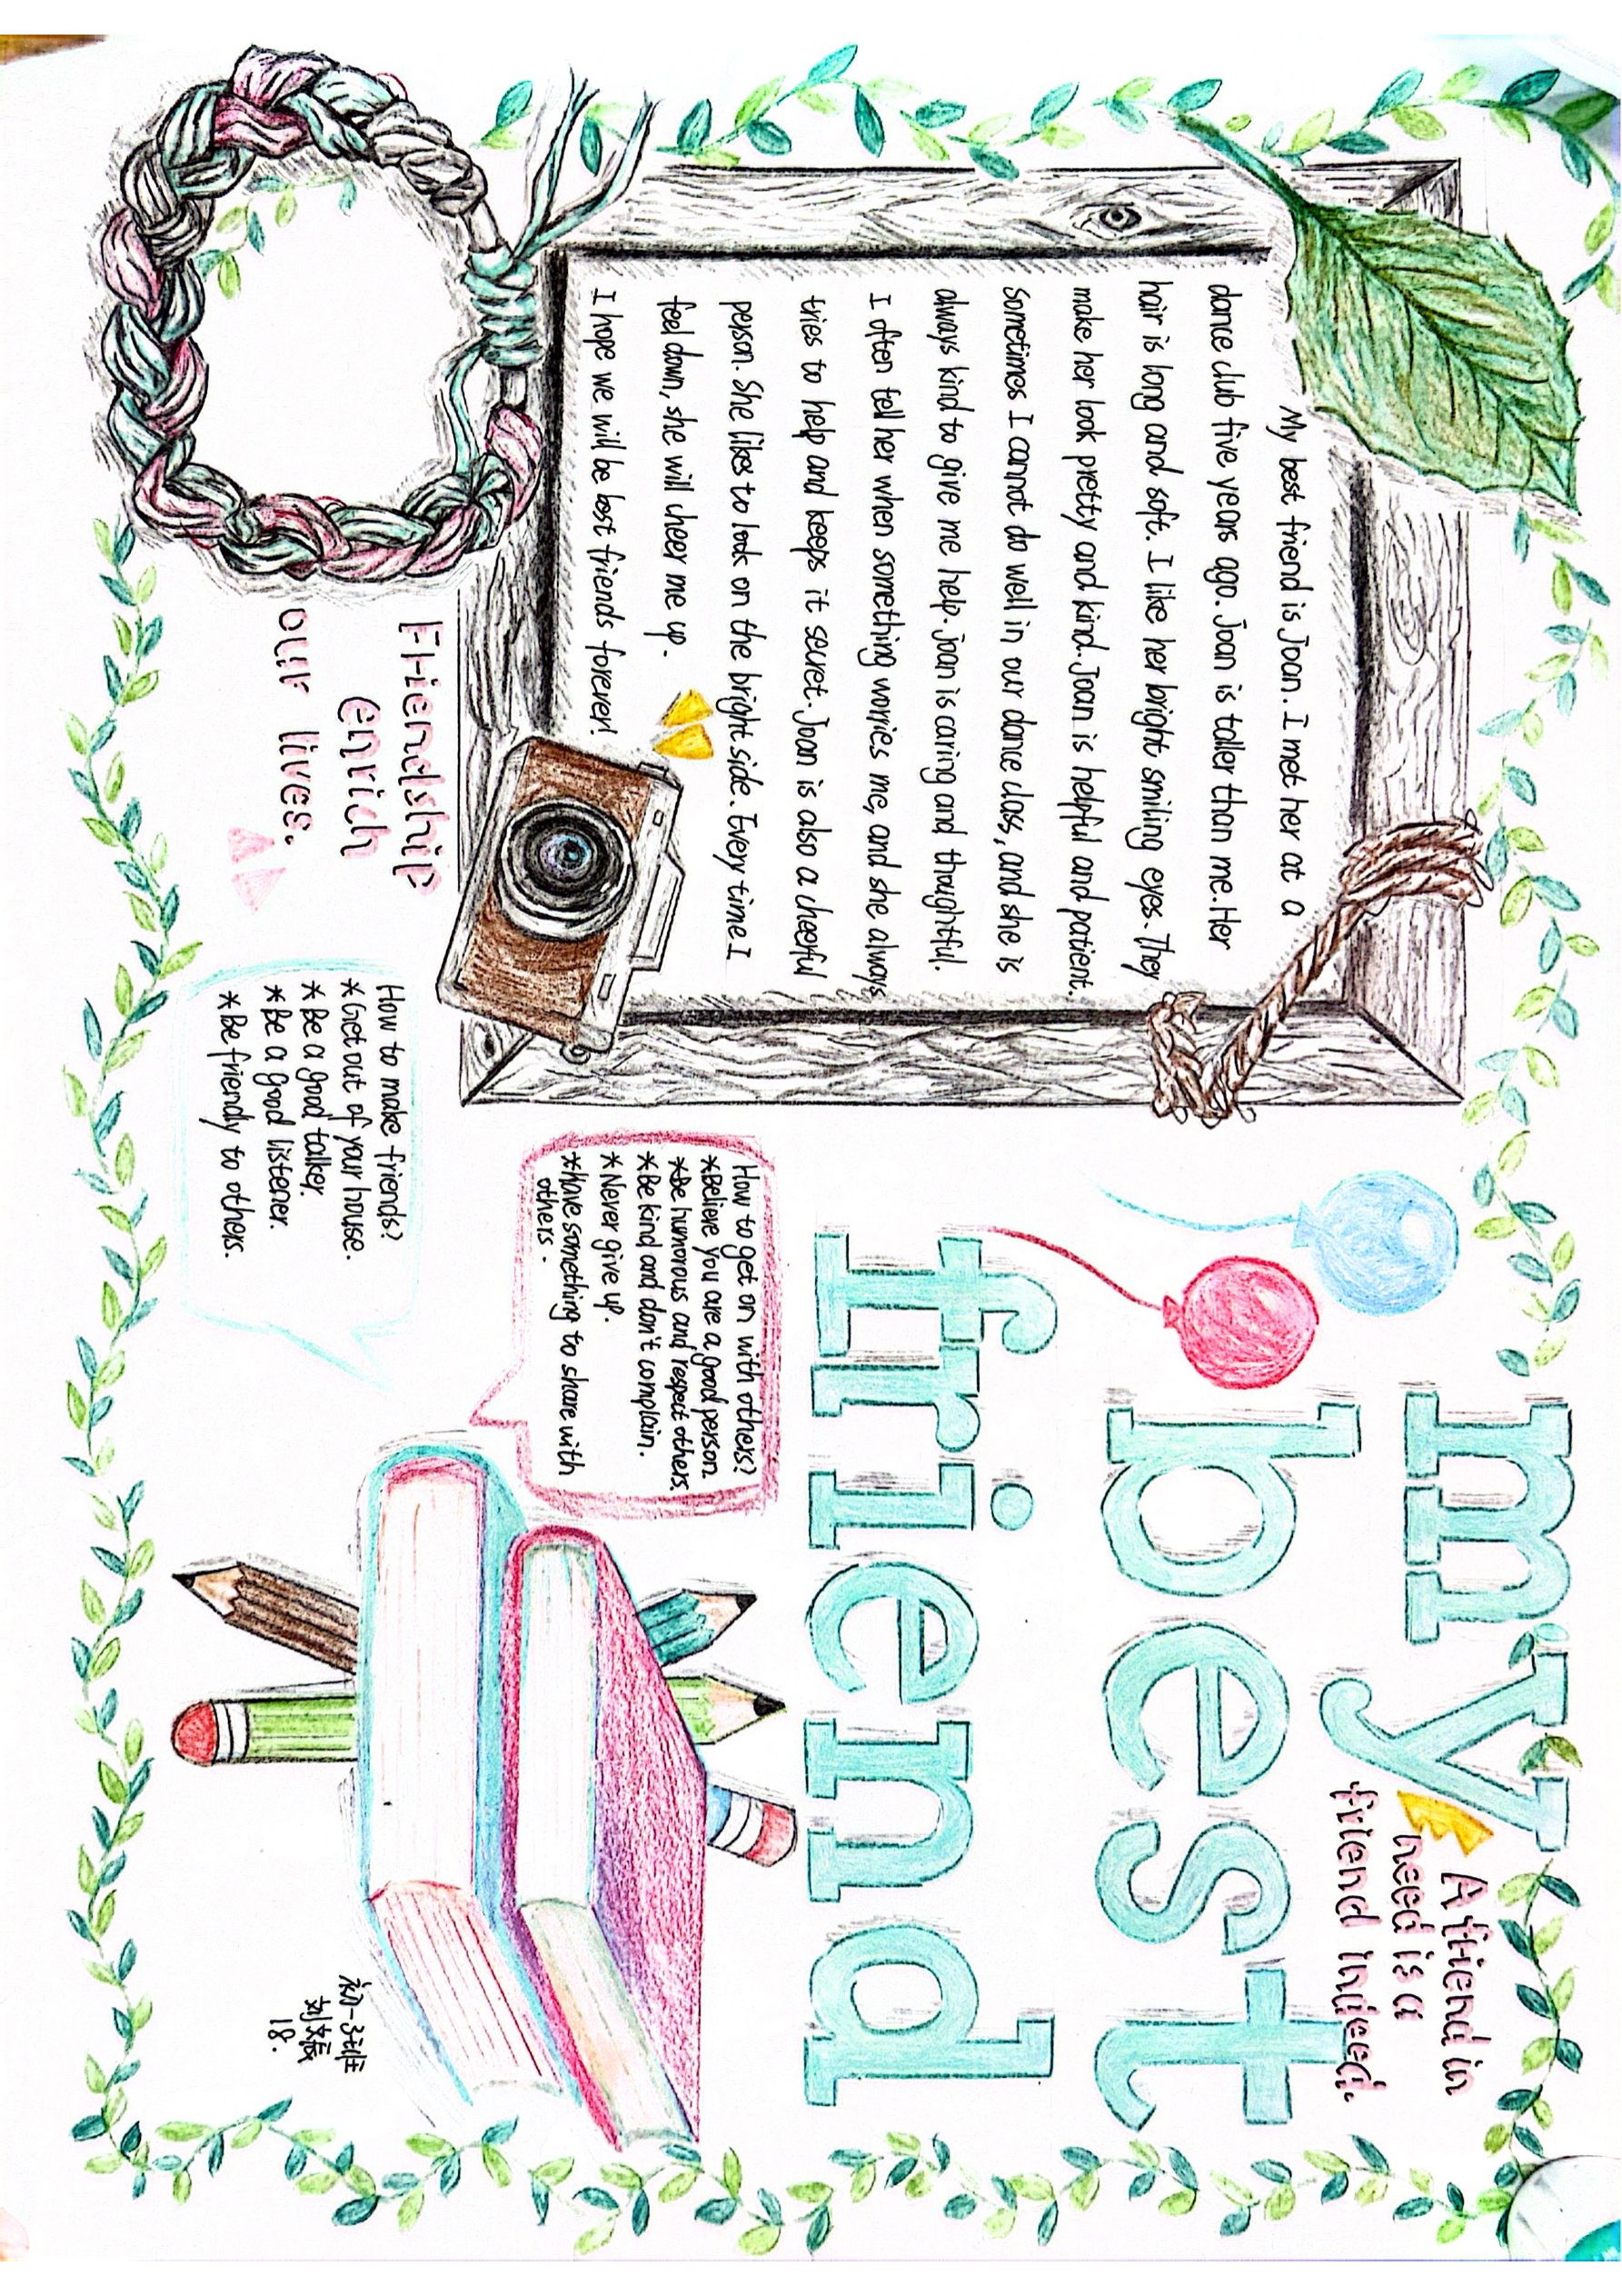 my
best
friend
A friend in
need is a
friend indeed.
My best friend is Joan. I met her at a
dance club five years ago. Joan is taller than me. Her
hair is long and soft. I like her bright smiling eyes. They
make her look pretty and kind. Joan is helpful and patient.
Sometimes I cannot do well in our dance class, and she is
always kind to give me help. Joan is caring and thoughtful.
I often tell her when something worries me, and she always
tries to help and keeps it secret. Joan is also a cheerful
person. She likes to look on the bright side. Every time I
feel down, she will cheer me up.
I hope we will be best friends forever!
Friendship
enrich
our lives.
How to get on with others?
*Believe you are a good person
*Be humorous and respect others.
*Be kind and don't complain.
*Never give up.
*Have something to share with
others.
How to make friends?
*Get out of your house.
*Be a good talker.
*Be a good listener.
*Be friendly to others.
初一3班
18.